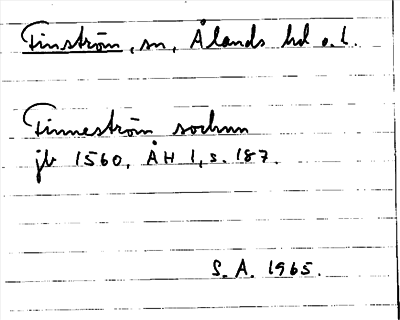 Finström, sn, Ålands hd o. l.
Finneström sochnn
jb 1560, ÅH 1, s. 187.
S. A. 1965.